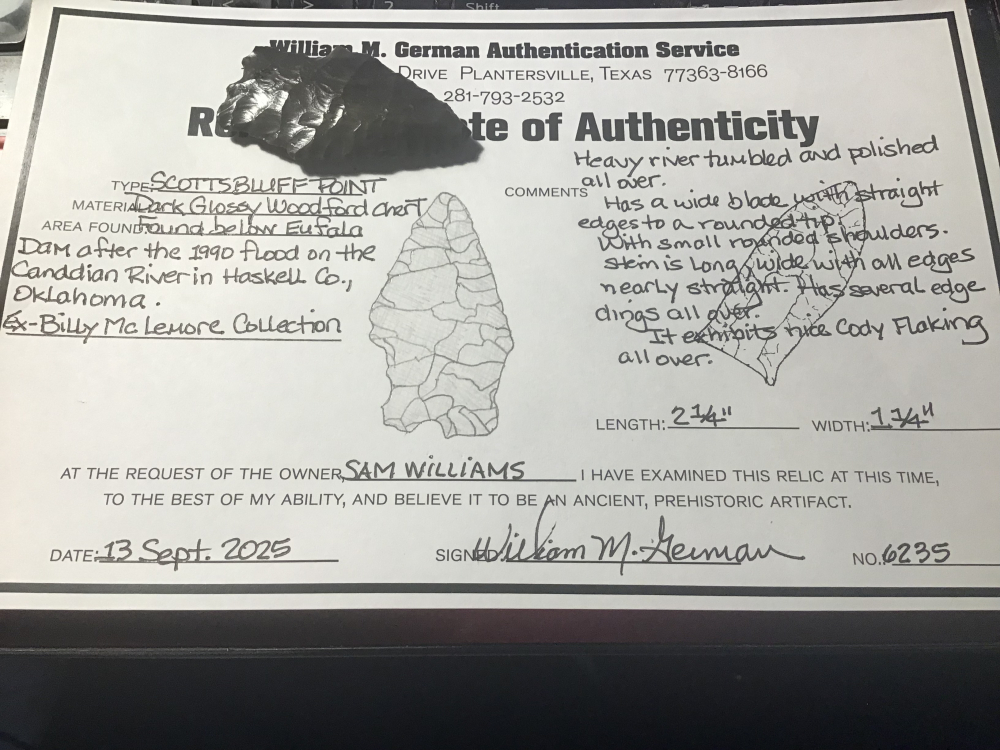 Shift
William M. German Authentication Service
DRIVE PLANTERSVILLE, TEXAS 77363-8166
281-793-2532
te of Authenticity
TYPE: SCOTTSBLUFF POINT
MATERIAL Dark Glossy Woodford Chert
AREA FOUND Found below Eufala
Dam after the 1990 flood on the
Canddian River in Haskell Co.,
Oklahoma.
Ex-Billy McLemore Collection
COMMENTS
Heavy river tumbled and polished
all over.
Has a wide blade with straight
edges to a rounded tip.
With small rounded shoulders.
Stem is Long, wide with all edges
nearly straight. Has several edge
dings all over.
It exhibits nice Cody Flaking
all over.
LENGTH: 2 1/4" WIDTH: 1 1/4"
AT THE REQUEST OF THE OWNER, SAM WILLIAMS I HAVE EXAMINED THIS RELIC AT THIS TIME,
TO THE BEST OF MY ABILITY, AND BELIEVE IT TO BE AN ANCIENT, PREHISTORIC ARTIFACT.
DATE: 13 Sept. 2025 SIGNED William M. German NO. 6235